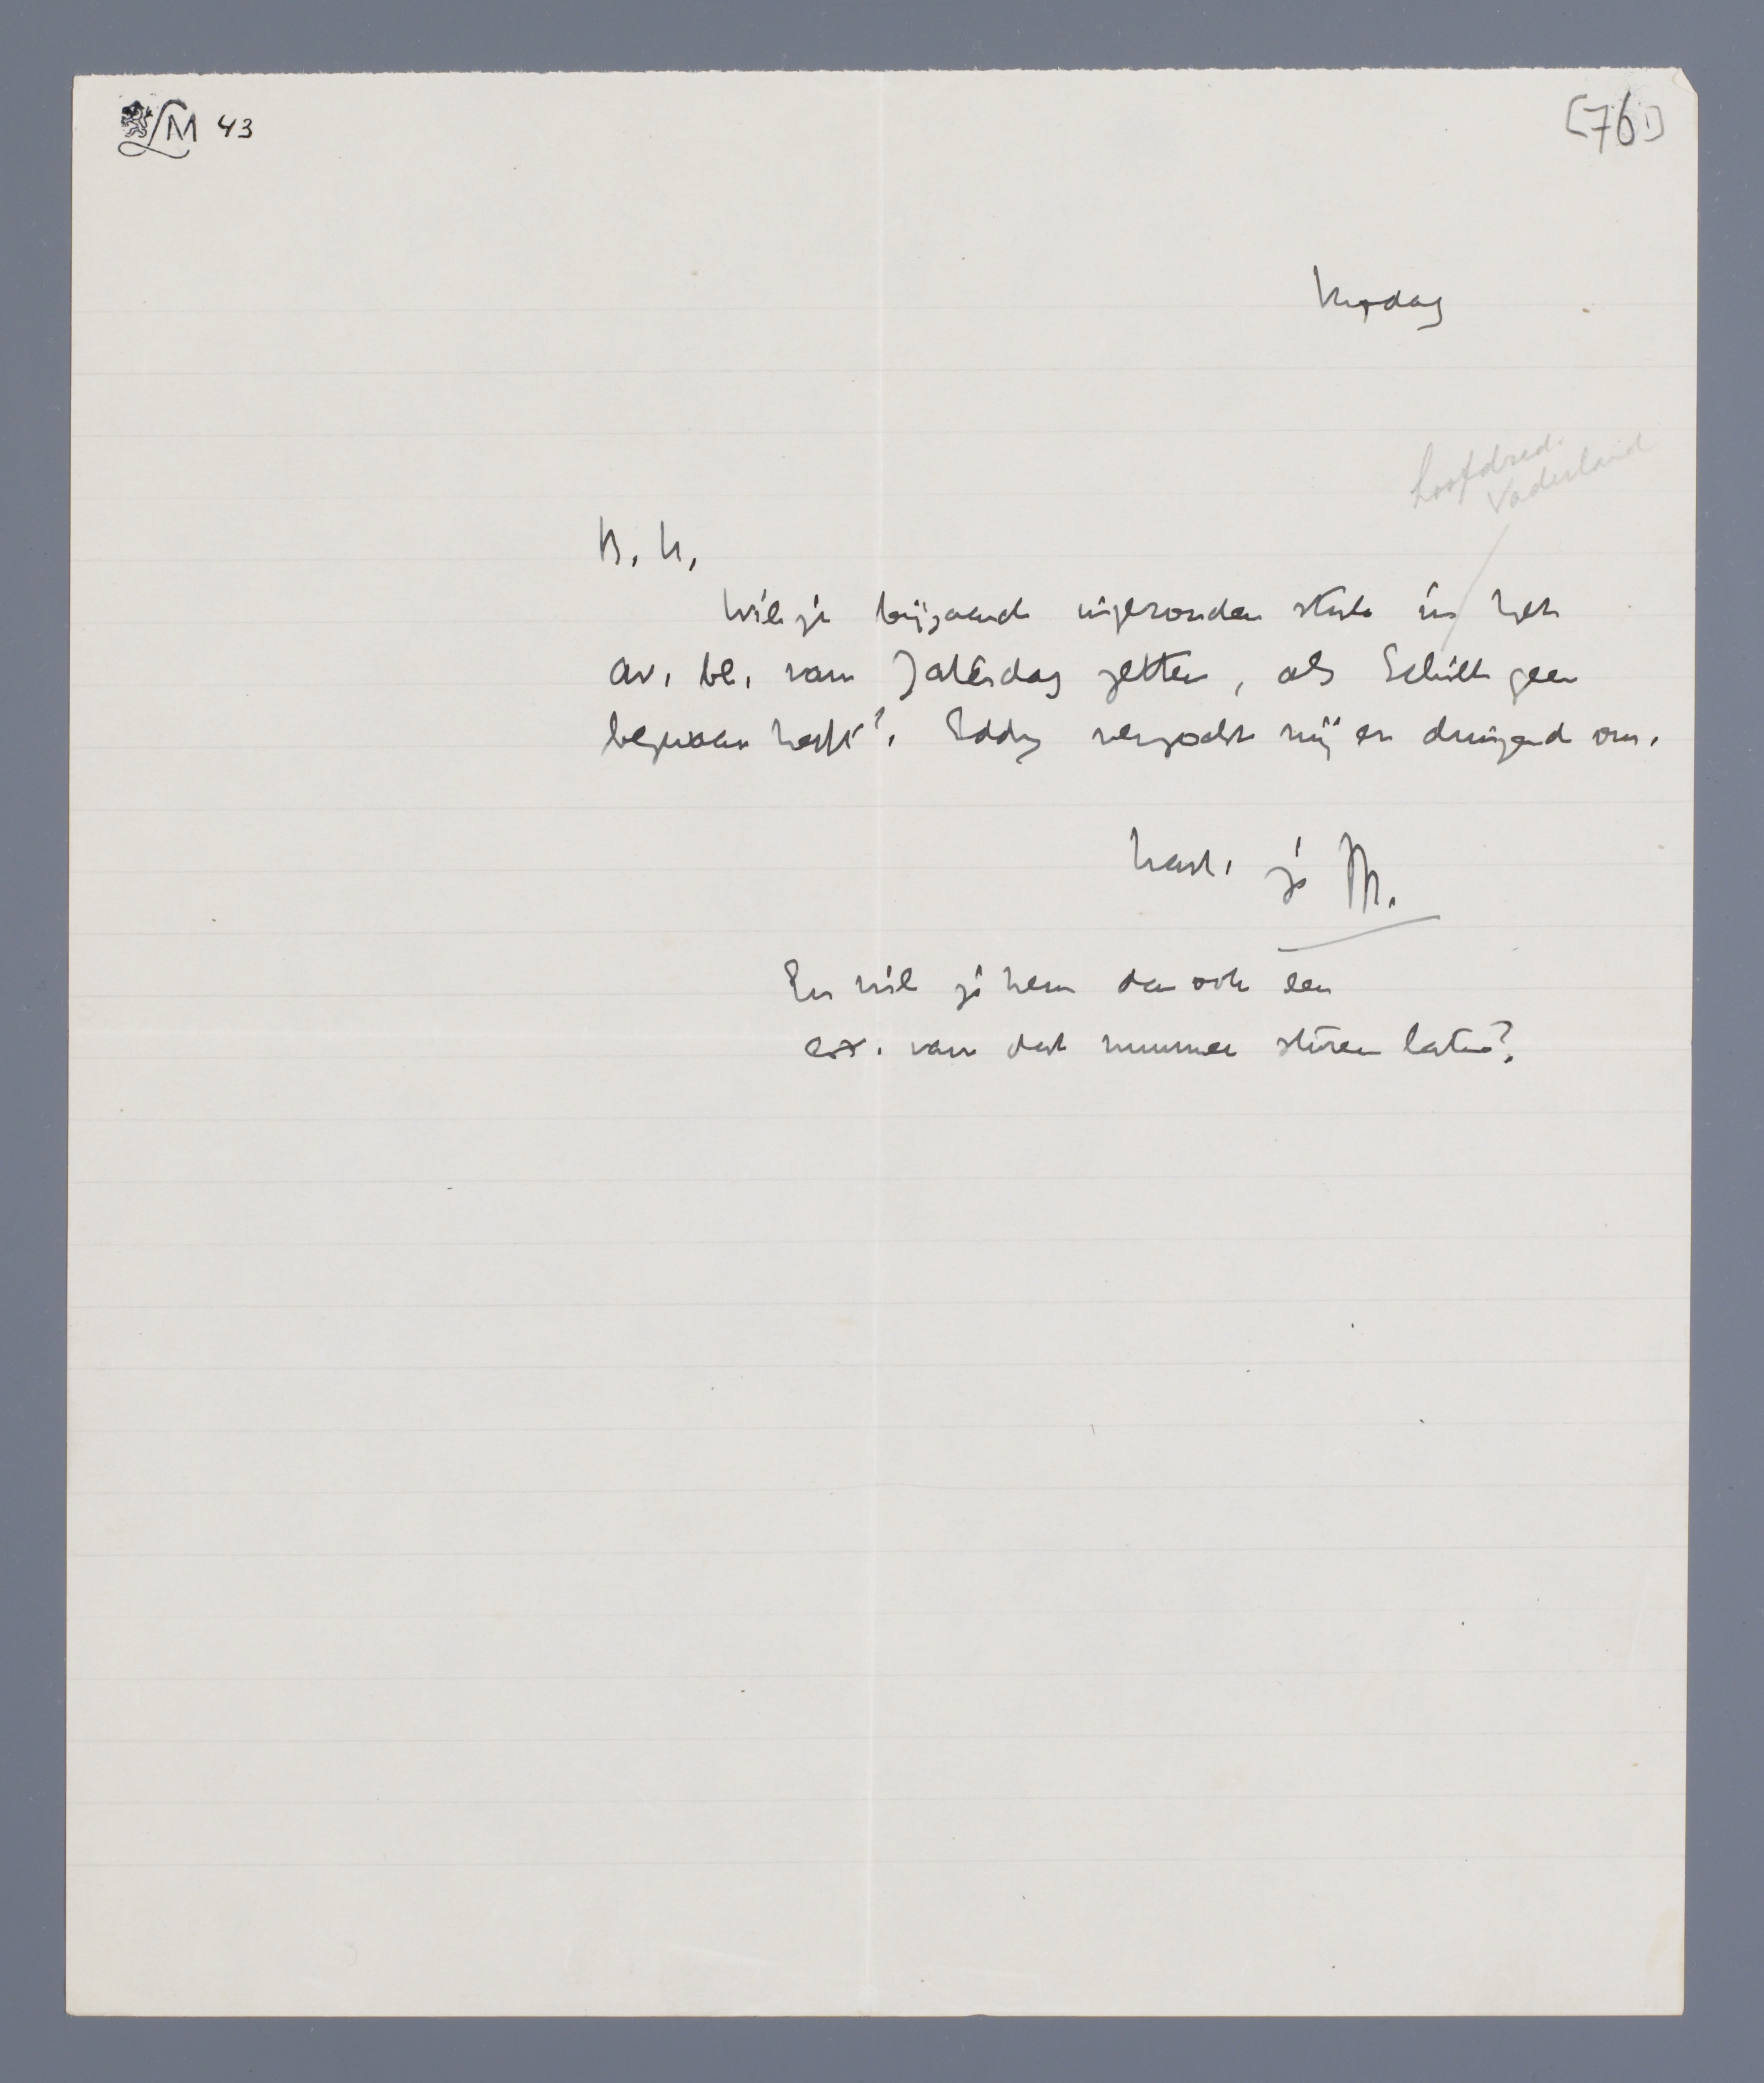 LM 43
[76]
Vrijdag
hoofdred.
Vaderland
B. H.
Wil je bijgaand ingezonden stuk in het
av. bl. van Zaterdag zetten, als Schilt geen
bezwaar heeft? Eddy verzoekt mij er dringend om.
hart. je M.
En wil je hem dan ook een
ex. van dat nummer sturen laten?